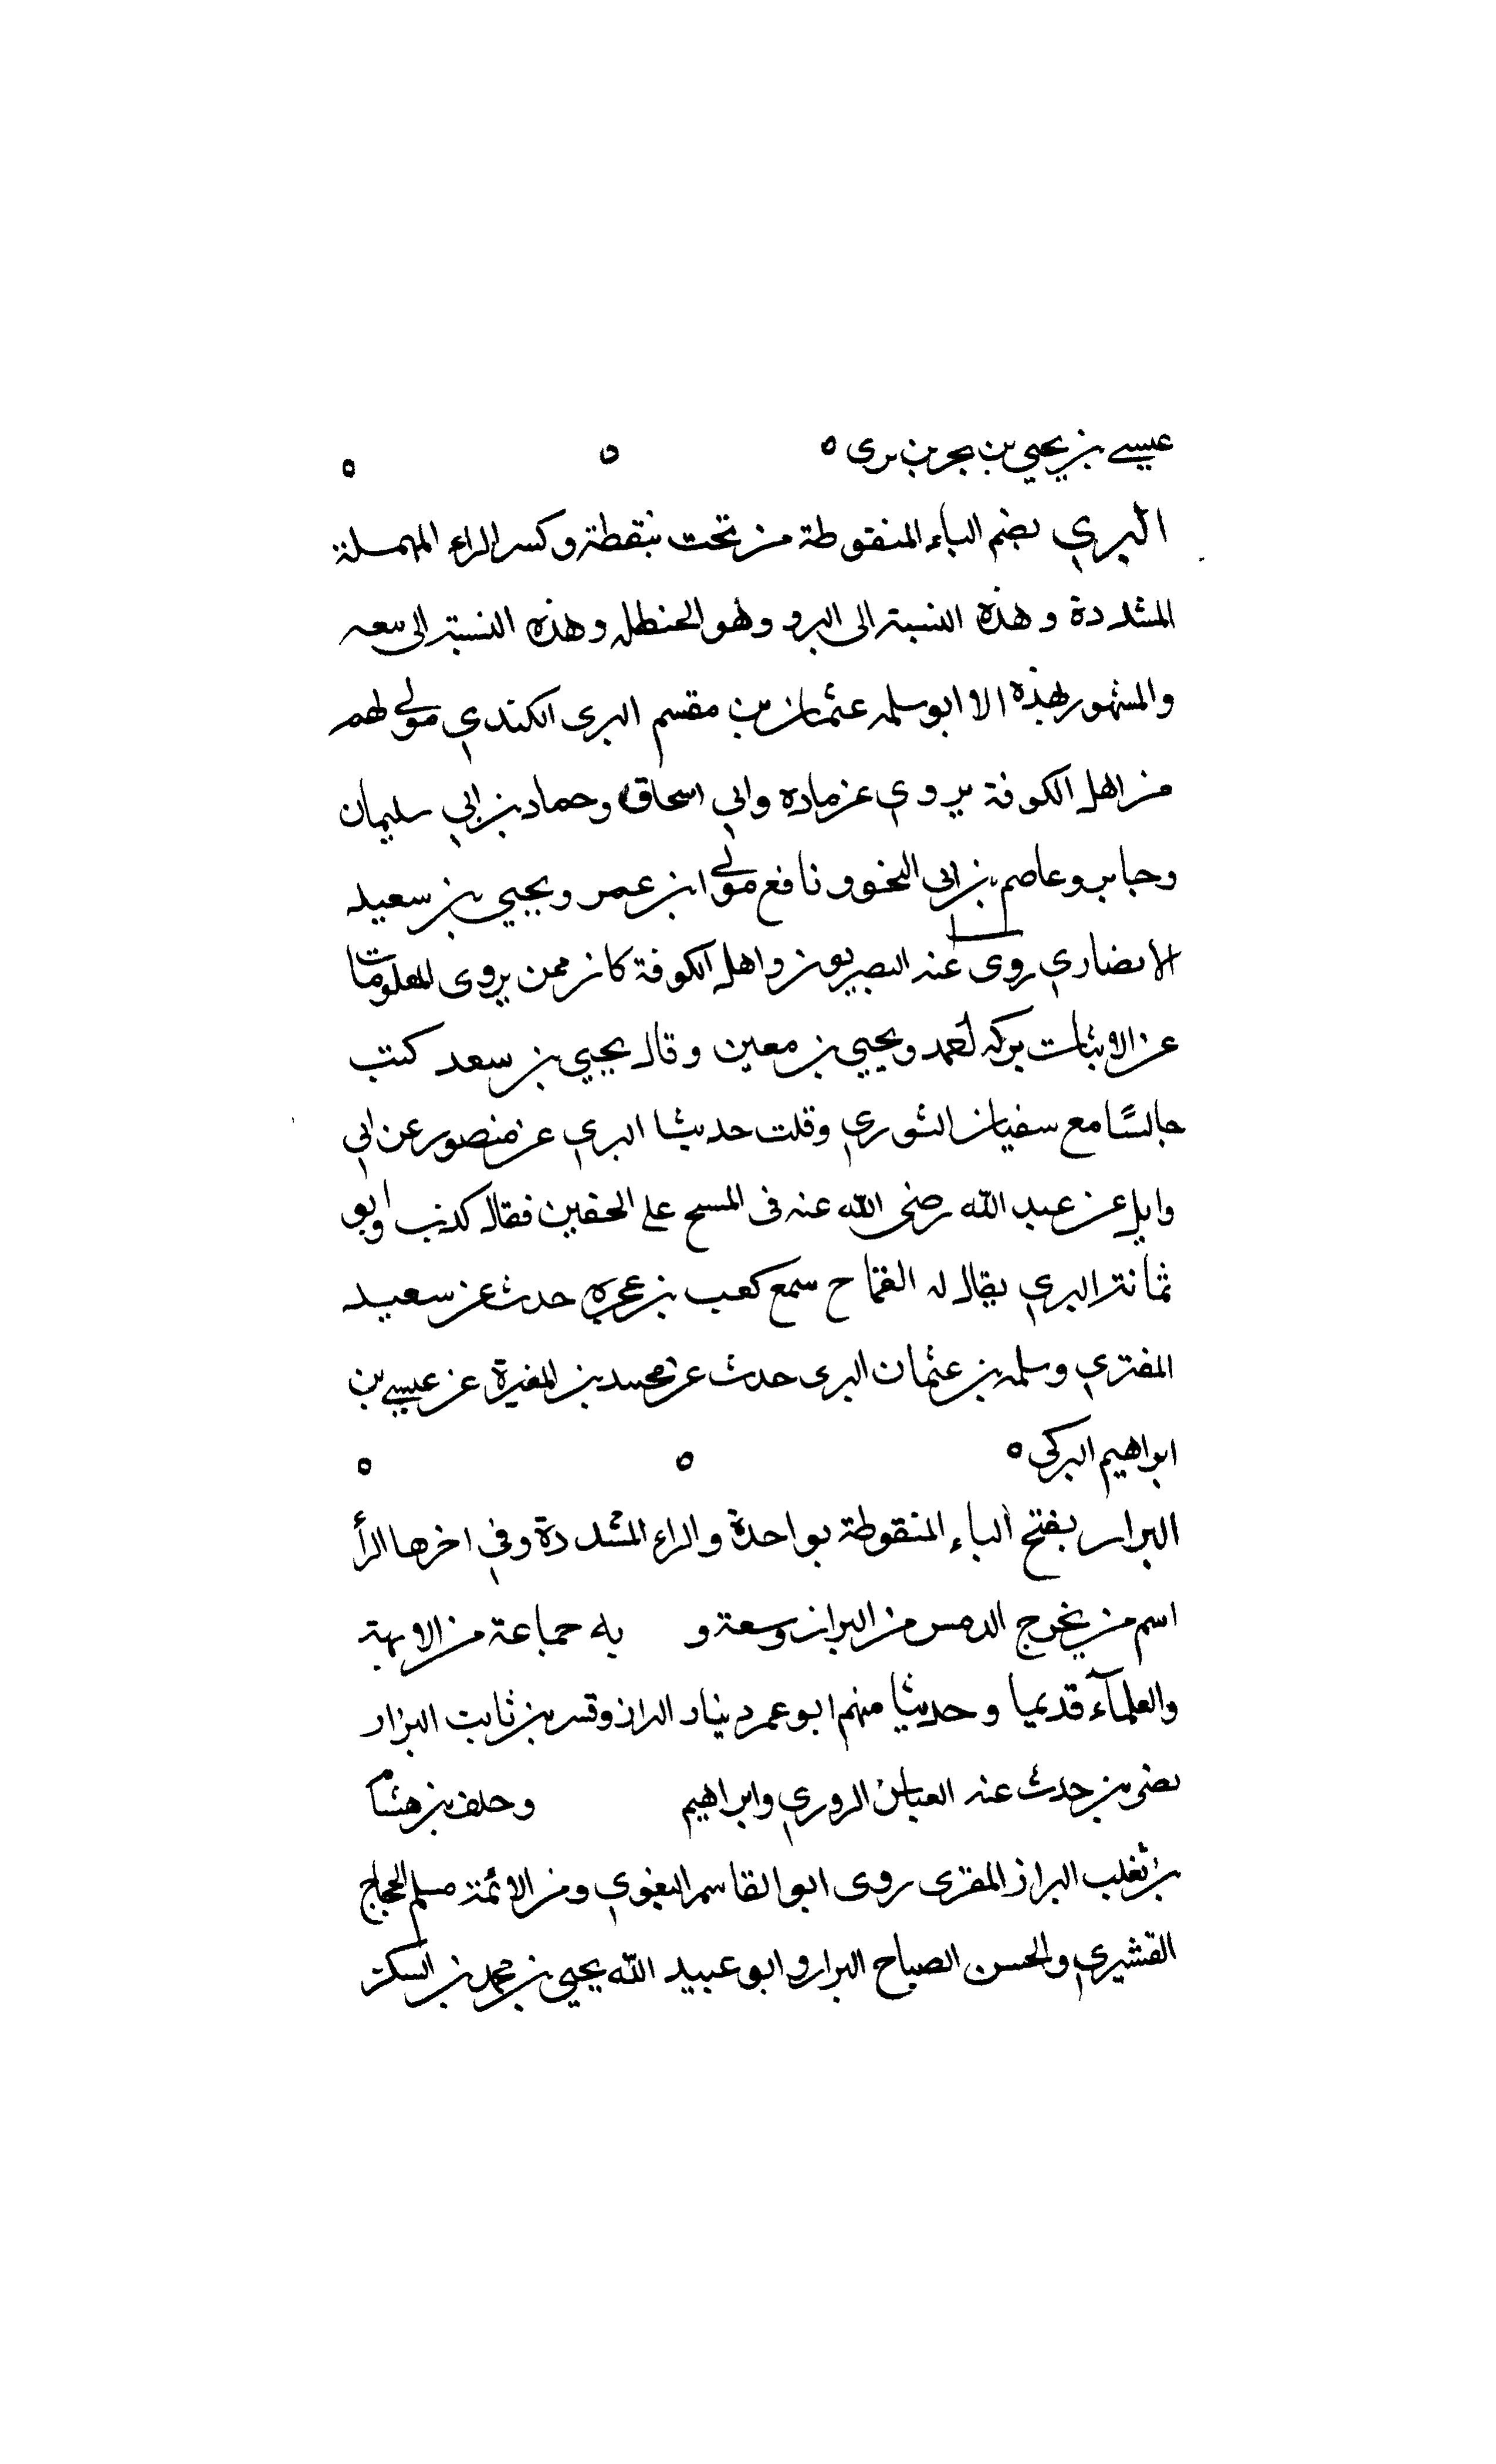 عيسى بن يحيى بن بحر بن برى ه ه ه
البري بضم الباء المنقوطة من تحت بنقطة وكسر الراء المهملة
المشددة وهذه النسبة الى البر وهو الحنطه وهذه النسبة الى بيعه
والمشهور بهذه الا ابو سلمه عثمان بن مقسم البرى الكندي مولى لهم
من اهل الكوفة يروي عن ماده وابي اسحاق وحماد بن ابي سليمان
وجابر وعاصم بن ابى النخو ونافع مولى ابن عمر ويحيى بن سعيد
الانصاري روى عنه البصريون واهل الكوفة كان ممن يروى المعلومات
عن الاثبات بركه لعمد ويحيى بن معين وقال يحيى بن سعد كنت
جالسًا مع سفيان الثوري وقلت حديثا البري عن منصور عن ابي
وايل عن عبد الله رضى الله عنه فى المسح على الخفين فقال كذب وابو
ثمانة البري يقال له القماح سمع كعب بن عجره حدث عن سعيد
المقبري وسلمه بن عثمان البرى حدث عن محمد بن المغيرة عن عيسى بن
ابراهيم البركى ه ه ه
البرار بفتح الباء المنقوطة بواحدة والراء المشددة وفي اخرها الرأ
اسم من يخرج الدهن من البزار وسعة و به جماعة من الايمة
والعلمآء قديما وحديثا منهم ابو عمر دينار البزار وبشر بن ثابت البزار
بصرى حدث عنه العباس الدوري وابراهيم وخلف بن هشام
بن ثعلب البزار المقرى روى ابو القاسم البغوي ومن الائمة مسلم الحجاج
القشيري والحسن الصباح البزار وابو عبيد الله يحيى بن محمد بن السكن